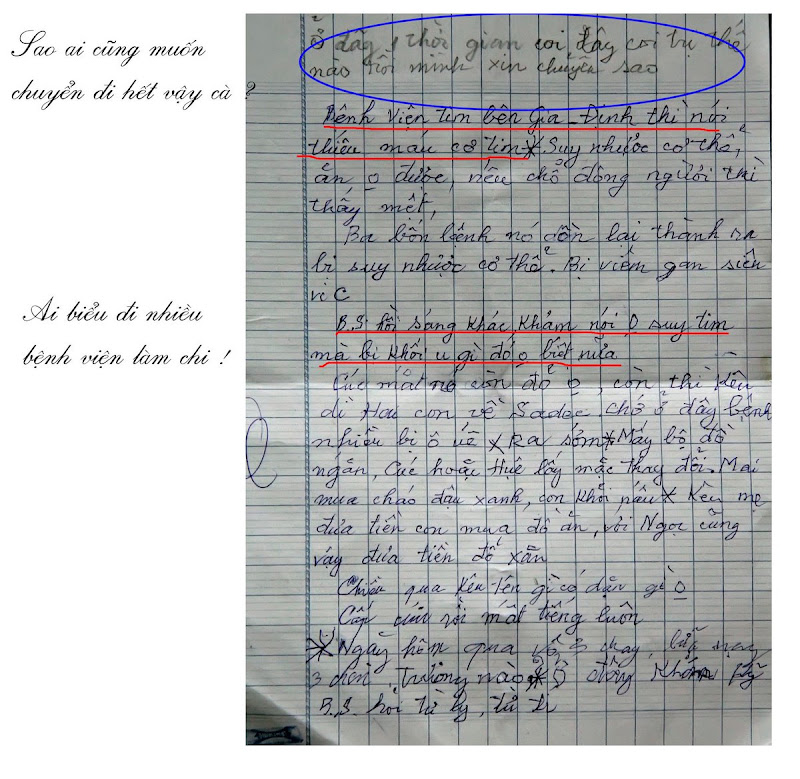 Sao ai cũng muốn
chuyển đi hết vậy cà ?
Ở đây, thời gian coi đây coi trụ thế
nào rồi mình xin chuyển sao
Bệnh Viện tim bên Gia-Định thì nói
thiếu máu cơ tim * Suy nhược cơ thể,
ăn o được, nếu chỗ đông người thì
thấy mệt,
Ba bốn bệnh nó dồn lại thành ra
bị suy nhược cơ thể. Bị viêm gan siên
vi C
Ai biểu đi nhiều
bệnh viện làm chi !
B.S hồi sáng khác khám nói o suy tim
mà bị khối u gì đó o biết nữa
Cúc mắt nó còn đỏ o, còn thì kêu
dì Hau con về Sadec chớ ở đây bệnh
nhiều bị ô uế * Ra sớm * Mấy bộ đồ
ngắn, Cúc hoặc Huệ lấy mặc thay đổi. Mai
mua cháo đậu xanh, con khỏi nấu * Kêu mẹ
đưa tiền con mua đồ ăn, với Ngọc cũng
vậy đưa tiền đổ xăn
Chiều qua kêu tên gì có dặn gì o
Cấp cứu rồi mất tiếng luôn
* Ngày hôm qua vô 3 chay, bữa nay
3 chai, trưởng nào
B.S. hỏi từ ly, từ tr